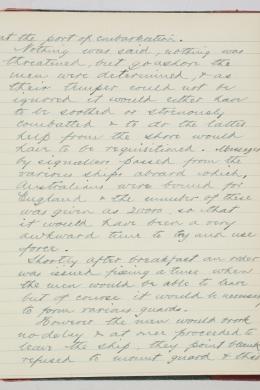 at the port of embarkation.
Nothing was said, nothing was
threatened, but go ashore the
men were determined, & as
their temper could not be
ignored it would either have
to be soothed or strenuously
combatted & to do the latter
help from the shore would
have to be requisitioned. Messages
by signallers passed from the
various ships aboard which
Australians were bound for
England & the number of these
was given as 21000, so that
it would have been a very
awkward time to try and use
force.
Shortly after breakfast an order
was issued fixing a time when
the men would be able to leave
but of course it would be necessary
to form various guards.
However the men would brook
no delay & at once proceeded to
leave the ship, they point blank
refused to mount guard & that